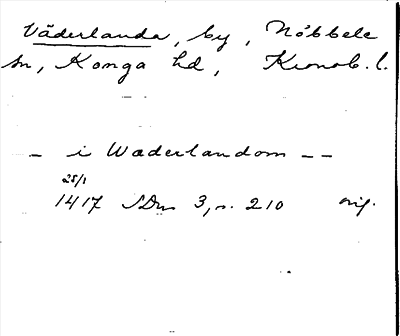 Väderlanda, by, Nöbbele
sn, Konga hd, Kronob. l.
– i Wæderlandom – –
25/1
1417 SDns 3, s. 210 orig.